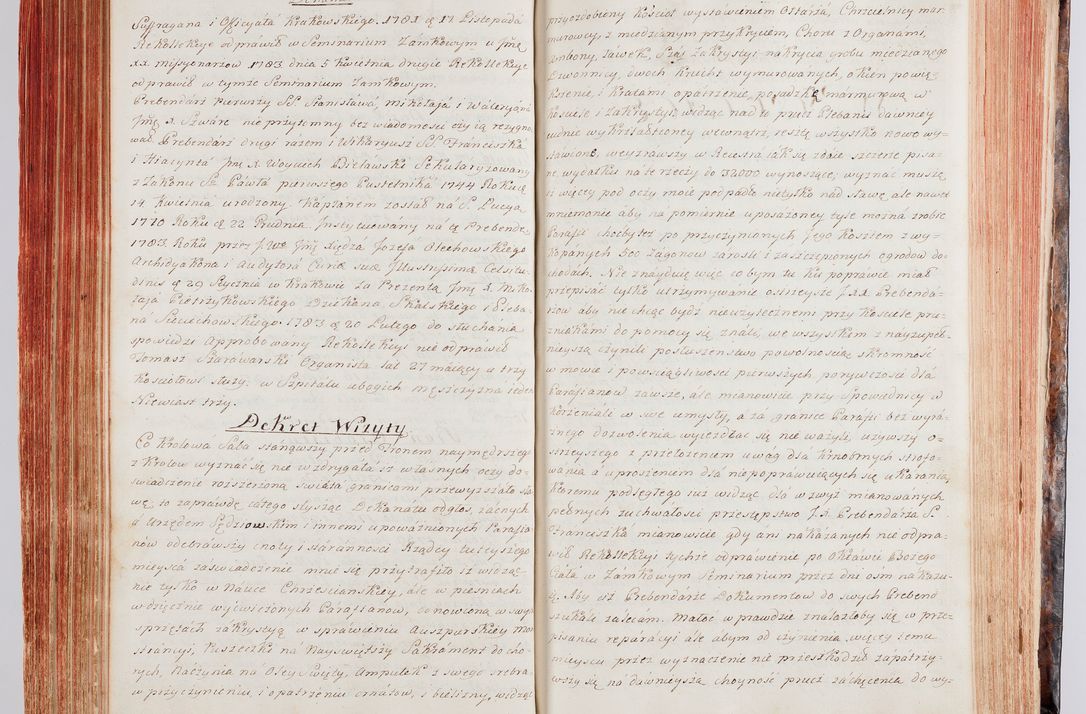 Suffragana i Officyała Krakowskiego. 1781 d 17 Listopada
Rekollekcye odprawił w Seminarium Zamkowym u Jmć
xx. missyonarzow 1783 dnia 5 Kwietnia drugie Rekollekcye
odprawił w tymże Seminarium Zamkowym.
Prebendarz pierwszy SS. Stanisława, mikołaja i Waleryana
Jmć x. nie przytomny bez wiadomości czy ią rezygno
wał Prebendarz drugi razem i Wikaryusz SS. Franciszka
i Hiacynta Jmć x. Woyciech Bielawski Sekularyzowany
z Zakonu S. Pawła pierwszego Pustelnika 1744 Roku d
14 Kwietnia urodzony Kapłanem został na S. Lucyą
1770 Roku d 22 Grudnia, Instytuowany na tę Prebendę
1783 Roku przez J. Wo Jmć Xiędza Jozefa Olechowskiego
Archidyakona i Audytora Curiæ suæ Illustrissimæ Celsitu-
dinis d 29 Stycznia w Krakowie za Prezentą Jmć x. Miko-
łaja Pietrzykowskiego Dziekana Skalskiego i Pleba-
na Sieciechowskiego. 1783 d 20 Lutego do słuchania
spowiedzi Approbowany Rekollekcyi nie odprawił
Tomasz Organista lat 27 maiący a trzy
Kościołowi służy: w Szpitalu ubogich męszczyzna ieden
Niewiast trzy.
Dekret Wizyty
Co Krolowa Saba stanąwszy przed Tronem naymędrszego
z Krolow wyznać się nie wzdrygała iż własnych oczy do-
świadczenie rozszerzoną świata granicami przewyższało sła
wę, to zaprawdę całego słysząc Dekanatu odgłos, zacnych
z Urzędem Sędziowskim i innemi upoważnionych Parafia-
now odebrawszy cnoty i staranności Rządcy tuteyszego
mieysca zaświadczenie mnie się przytrafiło iż widząc
nie tylko w Nauce Chrześcianskiey, ale w pieśniach
wdzięcznie wyćwiczonych Parafianow, odnowioną w swych
sprzętach zakrystyą w sprawieniu Auszpurskiey mon
strancyi, Puszeczki na Nayświętszy Sakrament do cho-
rych, Naczynia na Oley Swięty, Ampułek z swego srebra
w przyczynieniu, i opatrzeniu ornatow, i bielizny, widząc
przyozdobiony Kościoł wystawieniem Ołtarza, Chrzcielnicy mar-
murowey, z miedzianym przykryciem, Choru z Organami
Ambony, Ławek, Szaf Zakrystyi nakrycia grobu miedzianego
Dzwonnicy, dwoch Krucht wymurowanych, okien powięk-
kszenie, i Kratami opatrzenie, posadzkę marmurową w
Kosciele i Zakrystyi, widząc nad to przez Plebana dawniey
cudnie wykształconey wewnątrz, resztę wszystko nowo wy-
stawione, weyzrzawszy w Reiestra, iak się zdaie szczerze pisa-
ne wydatku na te rzeczy do 32000 wynoszące, wyznać muszę,
iż więcey pod oczy moie podpadło nie tylko nad sławę ale nawet
mniemanie aby na pomiernie uposażoney tyle można zrobić
Parafii chociby też po przyczynionych Jego kosztem z wy-
kopanych 500 zagonow zarośli i zaszczepionych ogrodow do-
chodach. Nie znayduię więc co bym tu ku poprawie miał
przepisać tylko utrzymywanie ostrzeysze J. xx. Prebenda-
rzow aby nie chcąc bydź nieużytecznemi przy Kosciele prze-
znakami do pomocy się znali, we wszystkim z nayzupeł-
nieyszą czynili posłuszenstwo powolnoscią skromność
w mowie i powsciągliwości pierwszych porywczości dla
Parafianow zawsze, ale mianowicie przy spowiednicy w-
korzeniali w swe umysły, a za granice Parafii bez wyra-
znego dozwolenia wycierdzać się nie ważyli, używszy o-
strzeyszego z przełożeniem uwag dla krnobrnych strofo-
wania a uproszeniem dla niepoprawuiących się ukarania,
ktoremu podległego iuż widząc dla w zwyż mianowanych
pełnych zuchwałości przestępstwo J. x. Prebendarza S.
Franciszka mianowicie gdy ani nakazanych nie odpra-
wił Rekollekcyi tychże odprawienie po Oktawie Bożego
Ciała w Zamkowym Seminarium przez dni osm nakazu-
ię. Aby też Prebendarze Dokumentow do swych Prebend
szukali zalecam. Małoć w prawdzie znalazłoby się w prze-
pisaniu reparacyi ale abym od czynienia więcey temu
mieyscu przez wyznaczenie nie przeszkodził zapatrzy-
wszy się na dawnieyszą chcyność przez zachęcenia do wy-